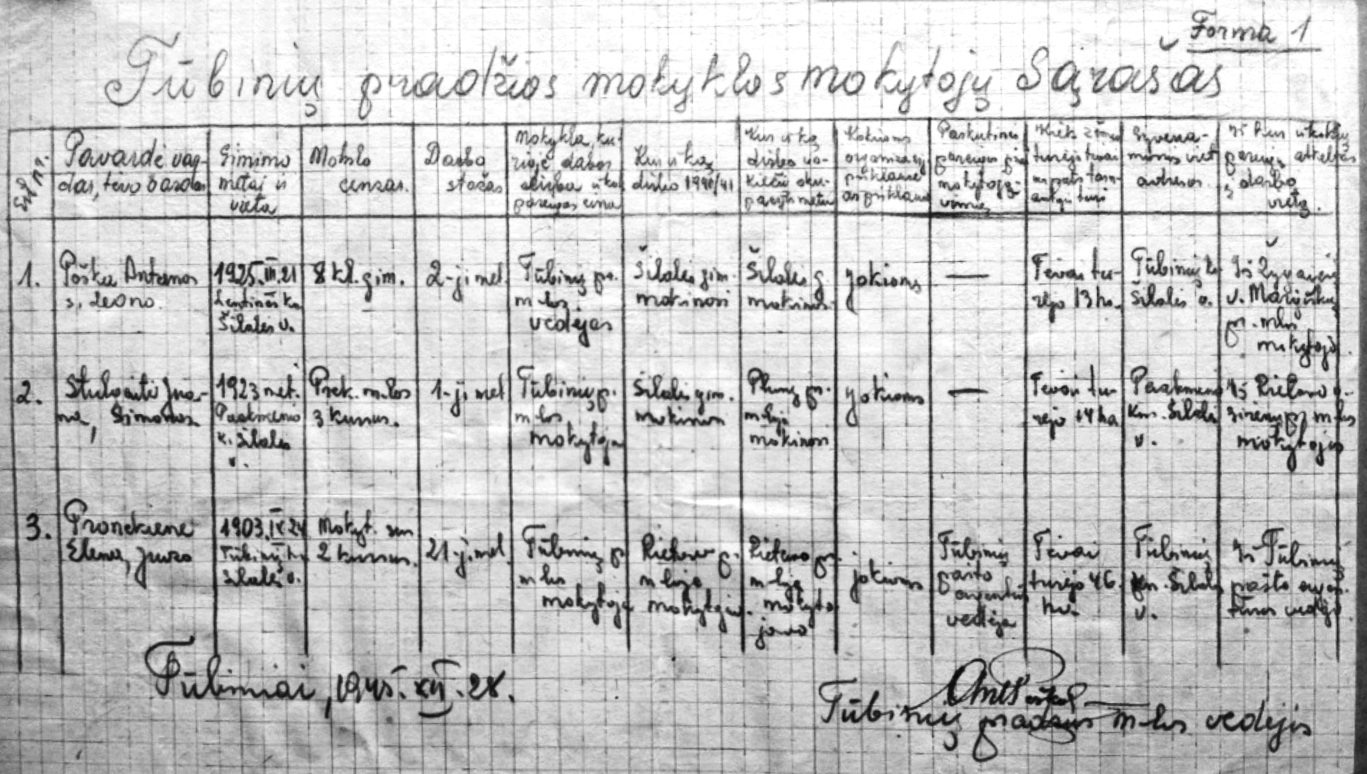 Forma 1
Tūbinių pradžios mokyklos mokytojų Sąrašas
Eil. nr.
Pavardė var-
das, tėvo vardas
Gimimo
metai ir
vieta
Mokslo
cenzas.
Darbo
stažas
Mokykla, ku-
rioje dabar
dirba ir
pareigos eina
Kur ir ką
dirbo 1940/41
Kur ir ką
dirbo vo-
kiečių oku-
pacijos metu
Kokioms
organizacij.
priklausė
ar priklauso
Paskutinės
pareigos
mokytojo-
Kiek žemės
turėjo tėvai
ar pats
turi
Gyvena-
mosios viet.
adresas.
Iš kur
pareigų atkeltas
į darbo
vietą.
1.
Poška Antanas
s. Leono.
1925.III.21
Šilalės v.
8 kl. gim.
2-ji met.
Tūbinių pr.
m-los
vedėjas
Šilalės gim.
mokinasi
Šilalės g.
mokinosi
jokioms
—
Tėvai tu-
rėjo 13 ha.
Tūbinių k.
Šilalės v.
Iš
v.
pr. m-los
mokytojo
2.
1923 met.
k. Šilalės
v.
Prek. m-los
3 kursus.
1-ji met
Tūbinių p.
m-los
mokytoja
Šilalės gim.
mokinosi
pr.
m-loj
mokinosi
jokioms
—
Tėvai tu-
rėjo 14 ha
km. Šilalės
v.
Iš
m-los
mokytojos
3.
Pronckienė
Elena, Juozo
1903.IX.24
Tūbinių k.
Šilalės v.
Mokyt. sem
2 kursus.
21-ji met.
Tūbinių p
m-los
mokytoja
p.
m-loje
pr.
m-loje
mokyto-
java
jokioms
Tūbinių
pašto
agentūr.
vedėja
Tėvai
turėjo 46
ha.
Tūbinių
km. Šilalės
v.
Iš Tūbinių
pašto agen-
tūros vedėj
Tūbiniai, 1945.XII.28.
Tūbinių pradžios m-los vedėjas